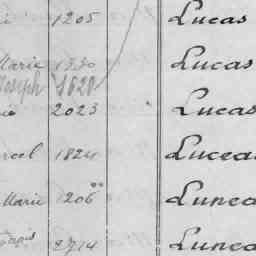 1205 Lucas
Marie 1530 Lucas
Joseph 1820
2023 Lucas
rcel 1824 Luceas
Marie 1206 Lunea
2714 Lunea